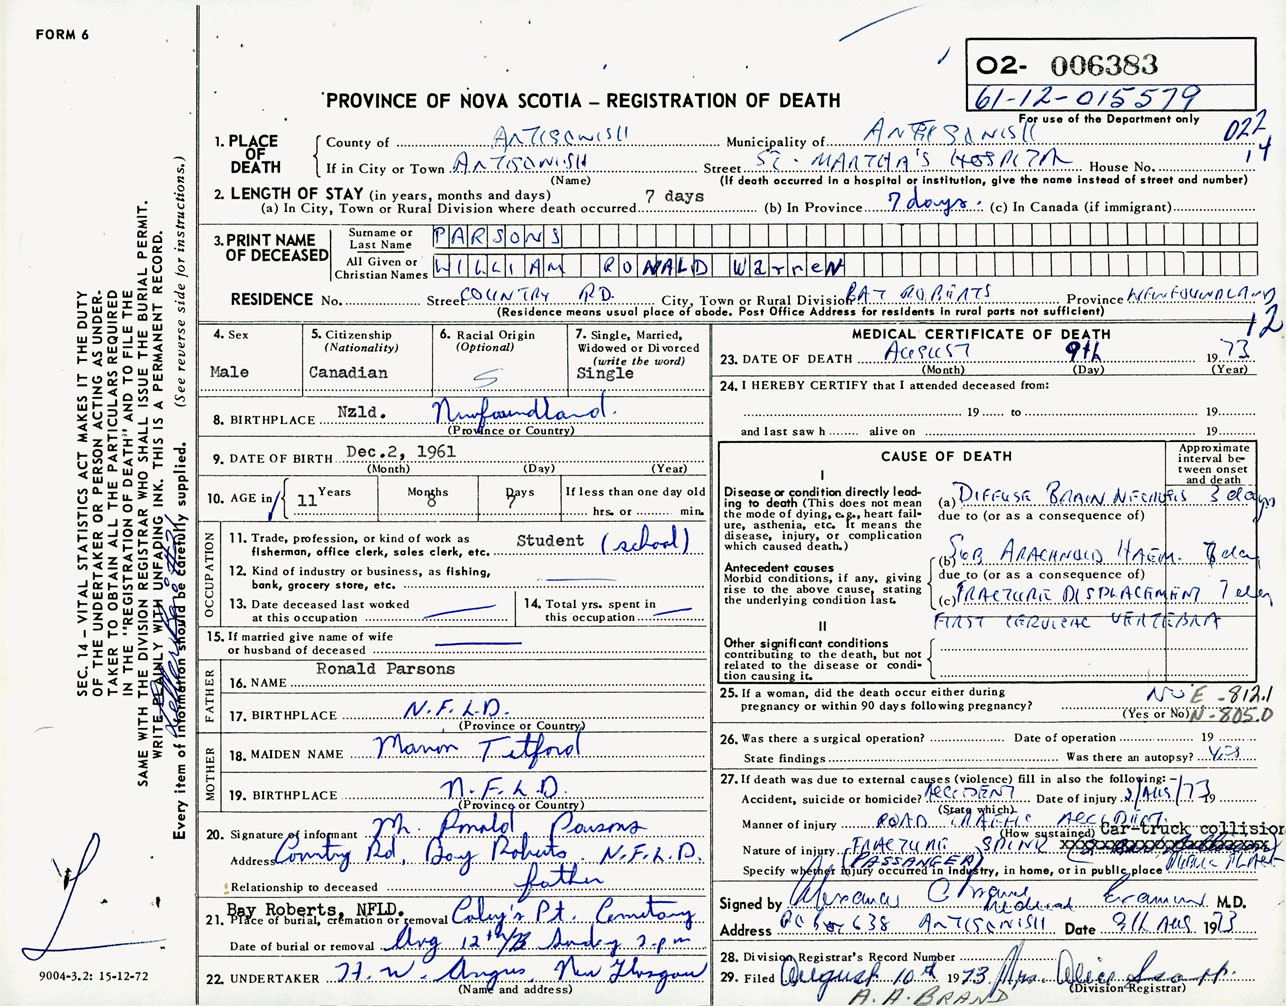 FORM 6
02- 006383
61-12-015579
For use of the Department only
PROVINCE OF NOVA SCOTIA – REGISTRATION OF DEATH
022
14
1. PLACE OF DEATH
County of ANTIGONISH Municipality of ANTIGONISH
If in City or Town ANTIGONISH Street ST. MARTHA'S HOSPITAL House No.
(Name) (If death occurred in a hospital or institution, give the name instead of street and number)
2. LENGTH OF STAY (in years, months and days)
(a) In City, Town or Rural Division where death occurred 7 days (b) In Province 7 days. (c) In Canada (if immigrant)
3. PRINT NAME OF DECEASED
Surname or Last Name PARSONS
All Given or Christian Names WILLIAM RONALD Warren
RESIDENCE No. Street COUNTRY RD. City, Town or Rural Division BAY ROBERTS Province NEWFOUNDLAND
(Residence means usual place of abode. Post Office Address for residents in rural parts not sufficient)
12
4. Sex
Male
5. Citizenship
(Nationality)
Canadian
6. Racial Origin
(Optional)
5
7. Single, Married,
Widowed or Divorced
(write the word)
Single
8. BIRTHPLACE Nzld. Newfoundland.
(Province or Country)
9. DATE OF BIRTH Dec.2, 1961
(Month) (Day) (Year)
10. AGE in 11 Years Months 8 Days 7 If less than one day old
hrs. or min.
OCCUPATION
11. Trade, profession, or kind of work as
fisherman, office clerk, sales clerk, etc. Student (school)
12. Kind of industry or business, as fishing,
bank, grocery store, etc.
13. Date deceased last worked
at this occupation
14. Total yrs. spent in
this occupation
15. If married give name of wife
or husband of deceased
FATHER
16. NAME Ronald Parsons
17. BIRTHPLACE N.F.L.D.
(Province or Country)
MOTHER
18. MAIDEN NAME Marion Titford
19. BIRTHPLACE N.F.L.D.
(Province or Country)
20. Signature of informant Mr. Ronald Parsons
Address Country Rd, Bay Roberts, N.F.L.D.
Relationship to deceased father
Bay Roberts, NFLD.
21. Place of burial, cremation or removal Coley's Pt. Cemetary
Date of burial or removal Aug 12th/73 Sunday 2 p.m
22. UNDERTAKER H. W. Angus, New Glasgow
(Name and address)
MEDICAL CERTIFICATE OF DEATH
23. DATE OF DEATH AUGUST 9th 1973
(Month) (Day) (Year)
24. I HEREBY CERTIFY that I attended deceased from:
19 to 19
and last saw h alive on 19
CAUSE OF DEATH
Approximate interval between onset and death
I
Disease or condition directly leading to death (This does not mean the mode of dying, e.g., heart failure, asthenia, etc. It means the disease, injury, or complication which caused death.)
(a) DIFFUSE BRAIN NECROSIS 3 days
due to (or as a consequence of)
Antecedent causes
Morbid conditions, if any, giving rise to the above cause, stating the underlying condition last.
(b) SUB ARACHNOID HAEM. 7 day
due to (or as a consequence of)
(c) FRACTURE DISPLACEMENT 7 day
FIRST CERVICAL VERTEBRA
II
Other significant conditions contributing to the death, but not related to the disease or condition causing it.
25. If a woman, did the death occur either during
pregnancy or within 90 days following pregnancy? NO
(Yes or No)
E -812.1
N-805.0
26. Was there a surgical operation? Date of operation 19
State findings Was there an autopsy? YES
27. If death was due to external causes (violence) fill in also the following: –
Accident, suicide or homicide? ACCIDENT Date of injury 2/AUG/73 19
(State which)
Manner of injury ROAD TRAFFIC ACCIDENT.
(How sustained) Car-truck collision
Nature of injury FRACTURE SPINE
(PASSANGER) PUBLIC PLACE
Specify whether injury occurred in industry, in home, or in public place
Signed by Medical Examiner M.D.
Address PO Box 638 ANTIGONISH Date 9th AUG 1973
28. Division Registrar's Record Number
29. Filed August 10th 1973 Mrs. Alice
(Division Registrar)
A. A. BRAND
SEC. 14 – VITAL STATISTICS ACT MAKES IT THE DUTY
OF THE UNDERTAKER OR PERSON ACTING AS UNDER-
TAKER TO OBTAIN ALL THE PARTICULARS REQUIRED
IN THE "REGISTRATION OF DEATH" AND TO FILE THE
SAME WITH THE DIVISION REGISTRAR WHO SHALL ISSUE THE BURIAL PERMIT.
WRITE PLAINLY WITH UNFADING INK. THIS IS A PERMANENT RECORD.
Every item of information should be carefully supplied. (See reverse side for instructions.)
9004-3.2: 15-12-72